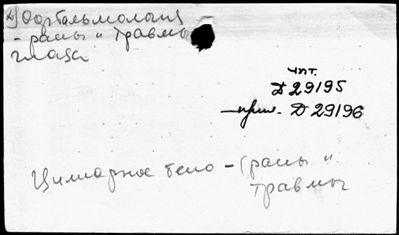 Офтальмология
- раны и травмы
глаза
чит.
Д 29195
Д 29196
Цилиарное тело - (раны и
травмы